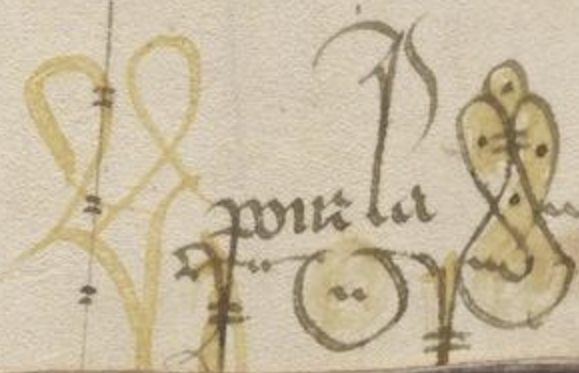 pour la